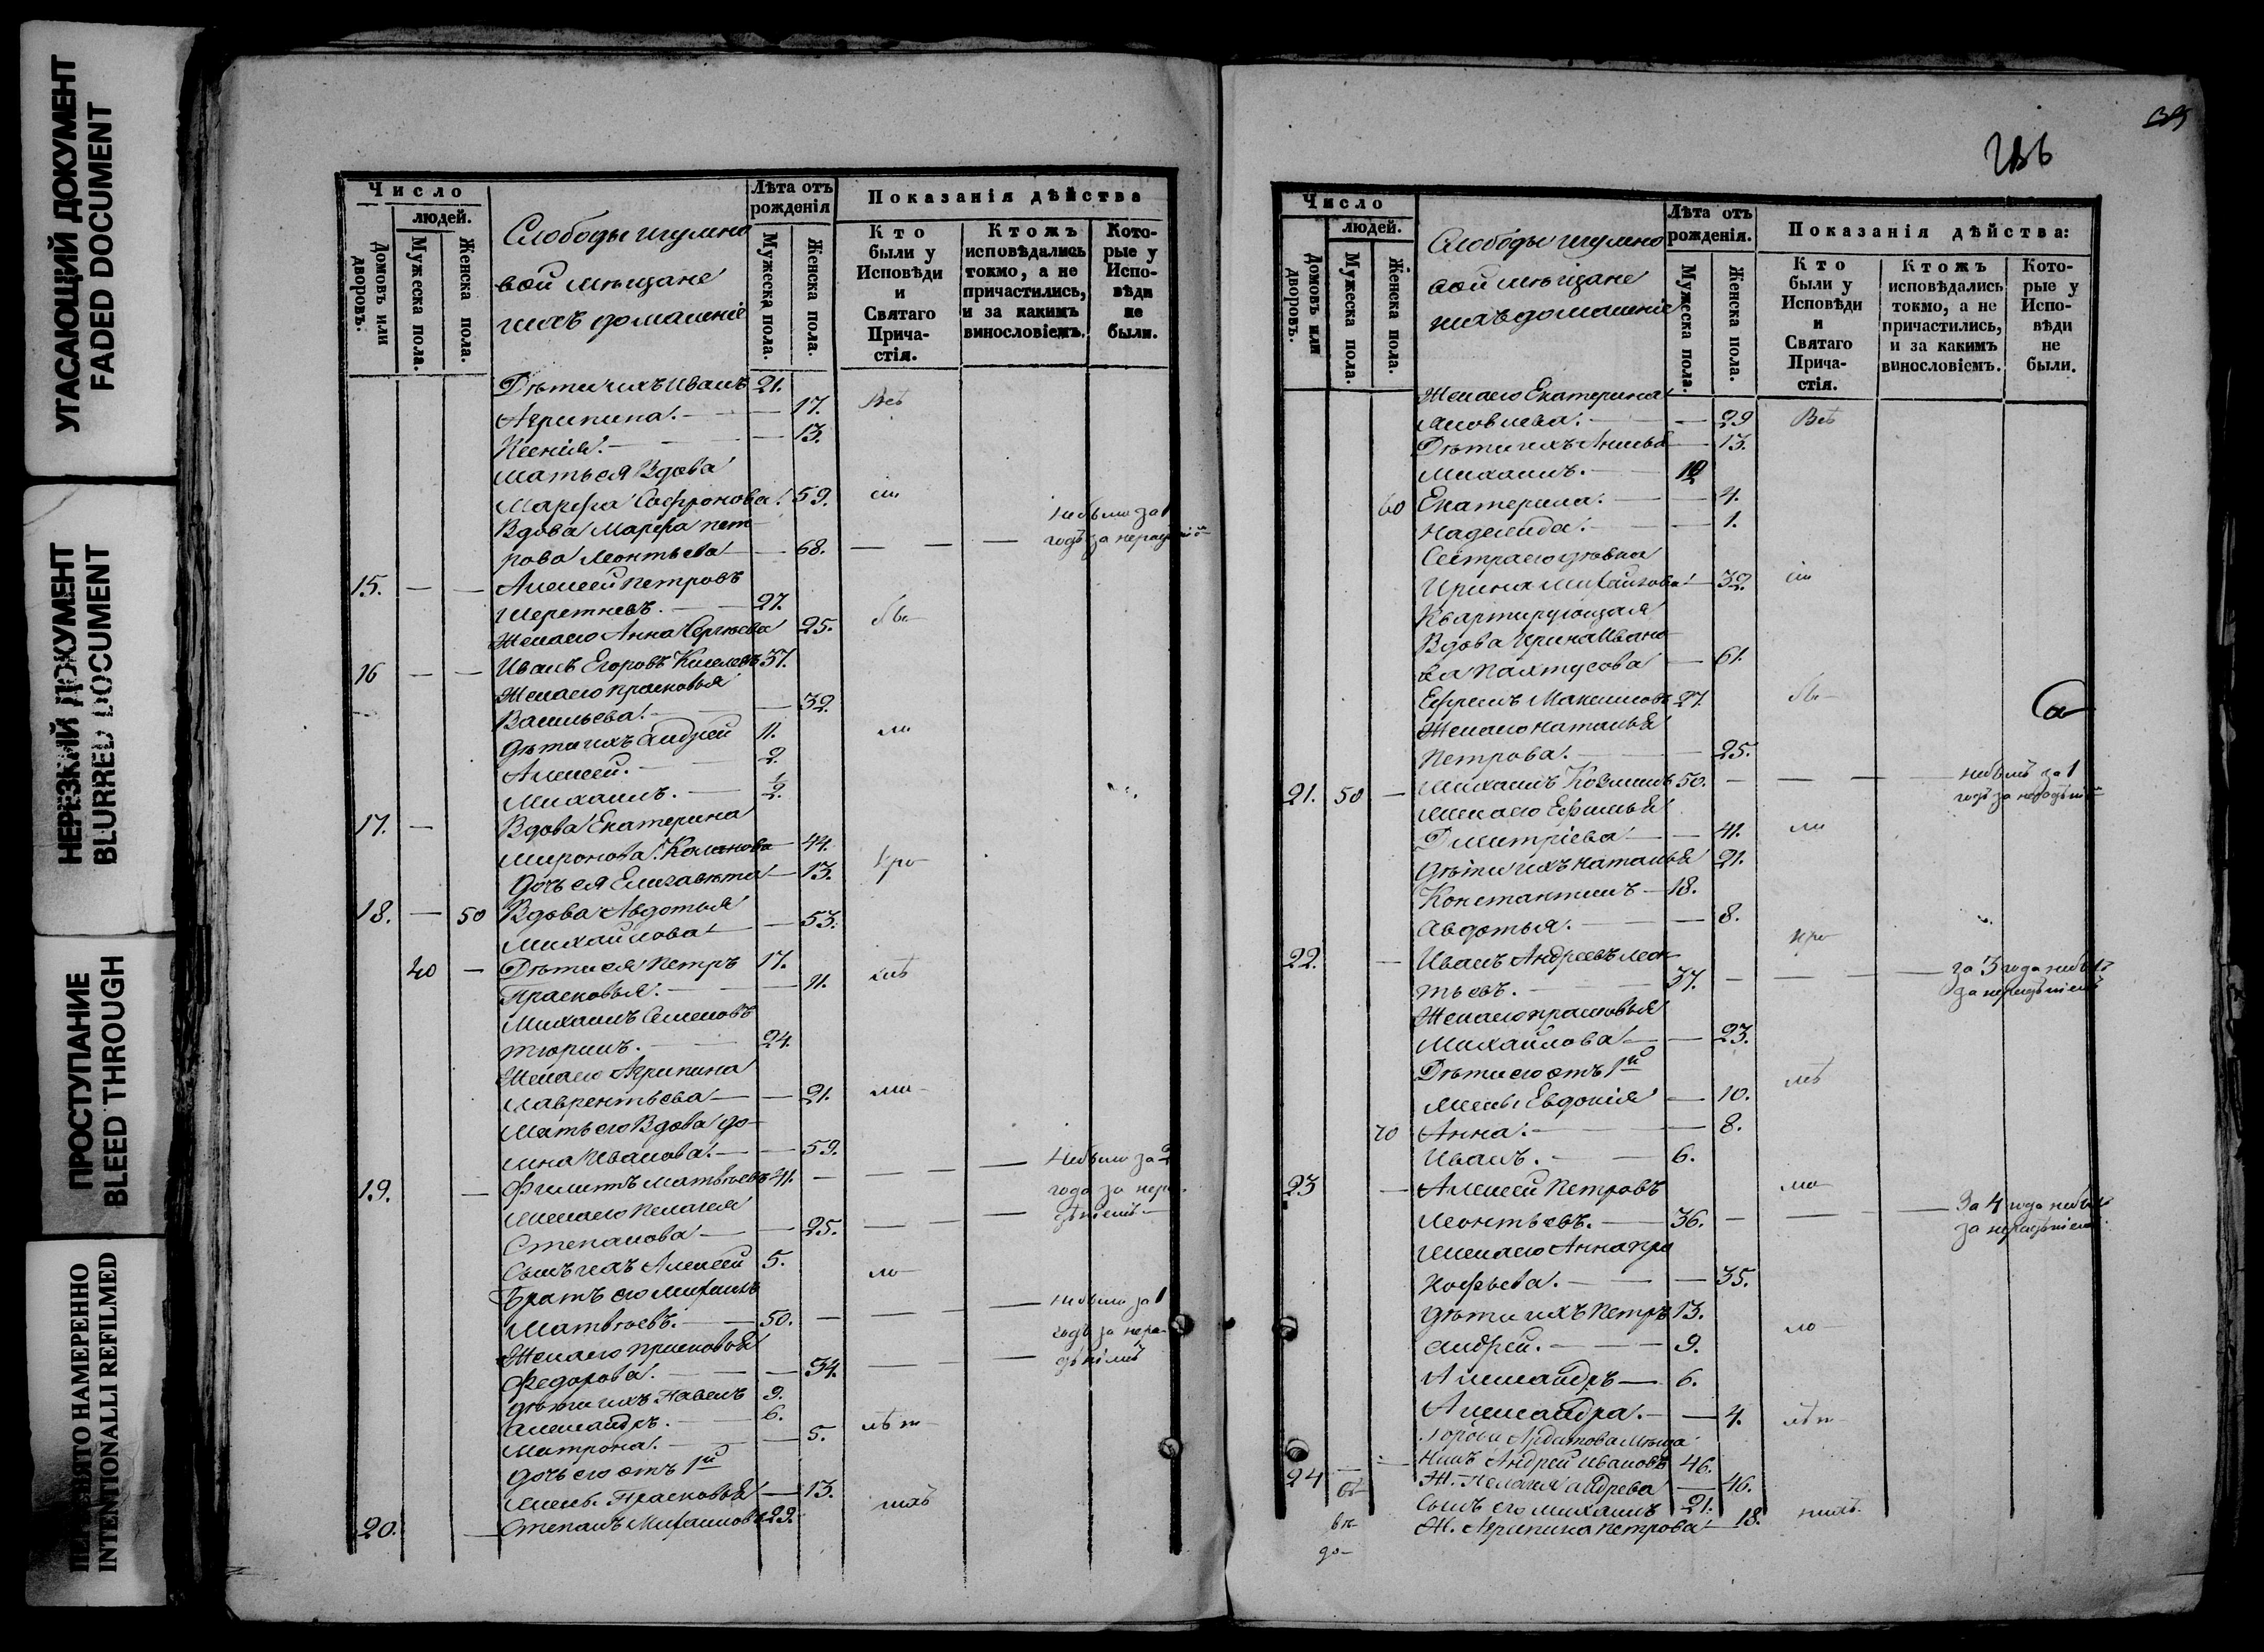 УГАСАЮЩИЙ ДОКУМЕНТ
FADED DOCUMENT
НЕРЕЗКИЙ ДОКУМЕНТ
BLURRED DOCUMENT
ПРОСТУПАНИЕ
BLEED THROUGH
ПЕРЕСНЯТО НАМЕРЕННО
INTENTIONALLI REFILMED
Число
людей.
Домовъ или дворовъ.
Мужеска пола.
Женска пола.
Слободы
вой мѣщане
ихъ домашніе
Лѣта отъ рожденія
Мужеска пола.
Женска пола.
Показанія дѣйства
Кто были у Исповѣди и Святаго Причастія.
Ктожъ исповѣдались токмо, а не причастились, и за какимъ винословіемъ.
Которые у Исповѣди не были.
Дѣти ихъ Иванъ 21.
Агрипина. 17. Всѣ
Ксенія. 13.
Мать ея Вдова
Марфа Сафронова. 59.
Вдова Марфа Пет- Небыла за 1
рова Леонтьева 68. годъ за
15. Алексей Петровъ
Шеретневъ. 27.
Жена его Анна Сергѣева 25.
16 Иванъ Егоровъ Киселевъ 37.
Жена его Прасковья
Васильева. 32.
Дѣти ихъ Андрей 11.
Алексей. 2.
Михаилъ. ½.
17. Вдова Екатерина
Миронова 44.
Дочь ея Елизавета 13.
18. 50 Вдова Авдотья
Михайлова 53.
40 Дѣти ея Петръ 17.
Прасковья. 11.
Михаилъ Семеновъ
Тюринъ. 24.
Жена его Агрипина
Лаврентьева 21.
Мать его Вдова До-
мна Иванова. 59.
Небыли за 2
19. Филиппъ Матвѣевъ 41. года за нера-
Жена его Пелагея дѣніемъ
Степанова 25.
Сынъ ихъ Алексей 5.
Братъ его Михаилъ небыли за 1
Матвѣевъ. 50. годъ за нера-
Жена его Прасковья дѣніемъ
Федорова. 34.
Дѣти ихъ Павелъ 9.
Александръ. 6.
Матрона. 5.
Дочь его отъ 1й
жены Прасковья 13.
20. Степанъ Михаиловъ 29.
39
Число
людей.
Домовъ или дворовъ.
Мужеска пола.
Женска пола.
Слободы
вой мѣщане
ихъ домашніе
Лѣта отъ рожденія.
Мужеска пола.
Женска пола.
Показанія дѣйства:
Кто были у Исповѣди и Святаго Причастія.
Ктожъ исповѣдались токмо, а не причастились, и за какимъ винословіемъ.
Которые у Исповѣди не были.
Жена его Екатерина
Яковлева. 29 Всѣ
Дѣти ихъ 13.
Михаилъ.
60 Екатерина. 4.
Надежда. 1.
Сестра его дѣвка
Ирина Михайлова 32.
Квартирующая
Вдова Ирина Ивано-
ва Пахтусова 61.
Ефремъ Максимовъ 27.
Жена его Наталья
Петрова. 25.
21. 50 Михаилъ Козминъ 50. небылъ за 1
Жена его Ефимья годъ за нерадѣніемъ
Дмитріева 41.
Дѣти ихъ Наталья 21.
Константинъ 18.
Авдотья. 8.
22. Иванъ Андреевъ Леон- за 3 года небылъ
тьевъ. 37. за нерадѣніемъ
Жена его Прасковья
Михайлова 23.
Дѣти его отъ 1й
жены Евдокія 10.
70 Анна. 8.
Иванъ. 6.
23 Алексей Петровъ За 4 года небылъ
Леонтьевъ. 36. за нерадѣніемъ
Жена его Анна Про
кофьева. 35.
Дѣти ихъ Петръ 13.
Андрей. 9.
Александръ 6.
Александра. 4.
Города Ардатова Мѣща
24 нинъ Андрей Ивановъ 46.
Ж. Пелагея Андрева 46.
Сынъ его Михаилъ 21.
Ж. Агрипина Петрова 18.